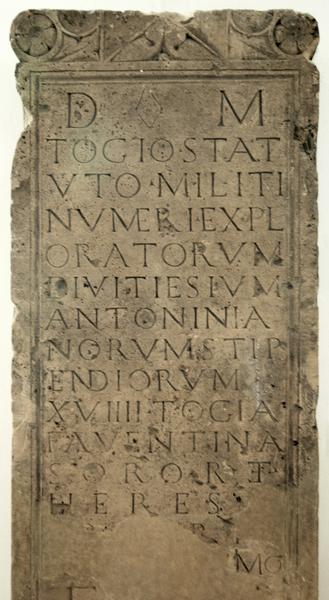 D M
TOGIO STAT
VTO·MILITI
NVMERI EXPL
ORATORVM
DIVITIESIVM
ANTONINIA
NORVM STIP
ENDIORVM
XVIIII·TOGIA
FAVENTINA
SOROR ET
HERES
MO